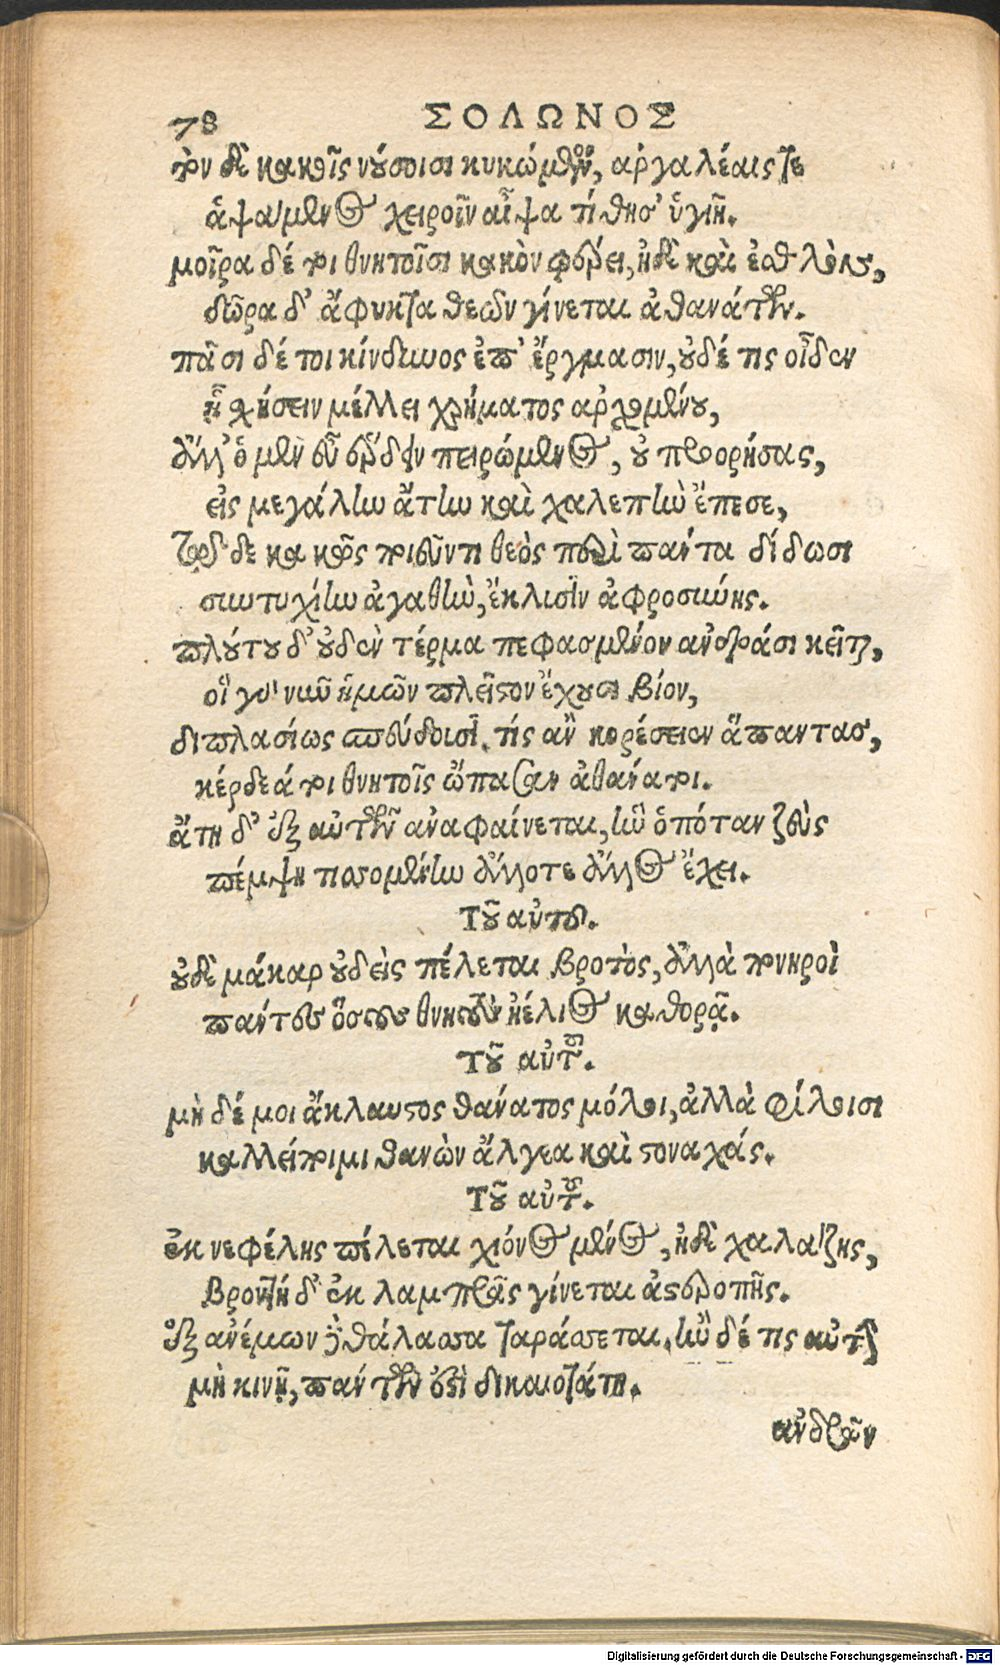 78 ΣΟΛΩΝΟΣ
τὸν δὲ κακαῖς νούσοισι κυκώμενον, ἀργαλέαις τε
ἁψάμενος χειροῖν αἶψα τίθησ' ὑγιῆ.
μοῖρα δέ τοι θνητοῖσι κακὸν φέρει, ἠδὲ καὶ ἐσθλόν,
δῶρα δ' ἄφυκτα θεῶν γίνεται ἀθανάτων.
πᾶσι δέ τοι κίνδυνος ἐπ' ἔργμασιν, οὐδέ τις οἶδεν
ᾗ σχήσειν μέλλει χρήματος ἀρχομένου,
ἀλλ' ὁ μὲν εὖ ἔρδειν πειρώμενος, οὐ προνοήσας,
εἰς μεγάλην ἄτην καὶ χαλεπὴν ἔπεσε,
τῷ δὲ κακῶς ποιοῦντι θεὸς περὶ πάντα δίδωσι
συντυχίην ἀγαθὴν, ἔκλυσιν ἀφροσύνης.
πλούτου δ' οὐδὲν τέρμα πεφασμένον ἀνδράσι κεῖται,
οἳ γὰρ νῦν ἡμῶν πλεῖστον ἔχουσι βίον,
διπλασίως σπεύδουσι. τίς ἂν κορέσειεν ἅπαντας,
κέρδεά τοι θνητοῖς ὤπασαν ἀθάνατοι.
ἄτη δ' ἐξ αὐτῶν ἀναφαίνεται, ἣν ὁπόταν ζεὺς
πέμψῃ τισομένην ἄλλοτε ἄλλος ἔχει.
Τοῦ αὐτοῦ.
οὐδὲ μάκαρ οὐδεὶς πέλεται βροτὸς, ἀλλὰ πονηροὶ
πάντες ὅσους θνητοὺς ἠέλιος καθορᾷ.
Τοῦ αὐτοῦ.
μὴ δέ μοι ἄκλαυστος θάνατος μόλοι, ἀλλὰ φίλοισι
καλλείποιμι θανὼν ἄλγεα καὶ στοναχάς.
Τοῦ αὐτοῦ.
ἐκ νεφέλης πέλεται χιόνος μένος, ἠδὲ χαλάζης,
βροντὴ δ' ἐκ λαμπρᾶς γίνεται ἀστεροπῆς.
ἐξ ἀνέμων δὲ θάλασσα ταράσσεται, ἢν δέ τις αὐτὴν
μὴ κινῇ, πάντων ἐστὶ δικαιοτάτη.
ἀνδρῶν
Digitalisierung gefördert durch die Deutsche Forschungsgemeinschaft - DFG